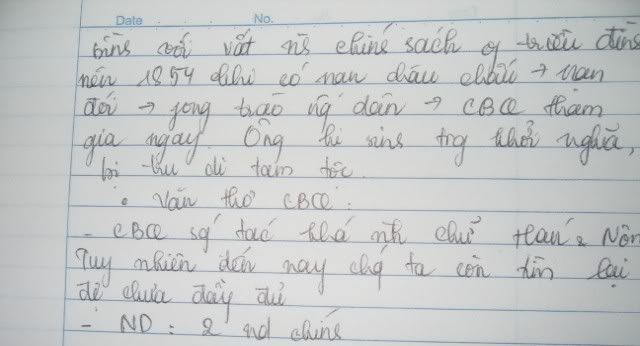 Date No.
bình với vất ng chính sách of triều đình
nên 1854 khi có nạn châu chấu → nạn
đói → fong trào ng dân → CBQ tham
gia ngay. Ông hi sinh trg khởi nghĩa,
bị tru di tam tộc.
• Văn thơ CBQ:
- CBQ sg tác khá nh chữ Hán & Nôm
Tuy nhiên đến nay chg ta còn tìm lại
đc chưa đầy đủ
- ND: 2 nd chính